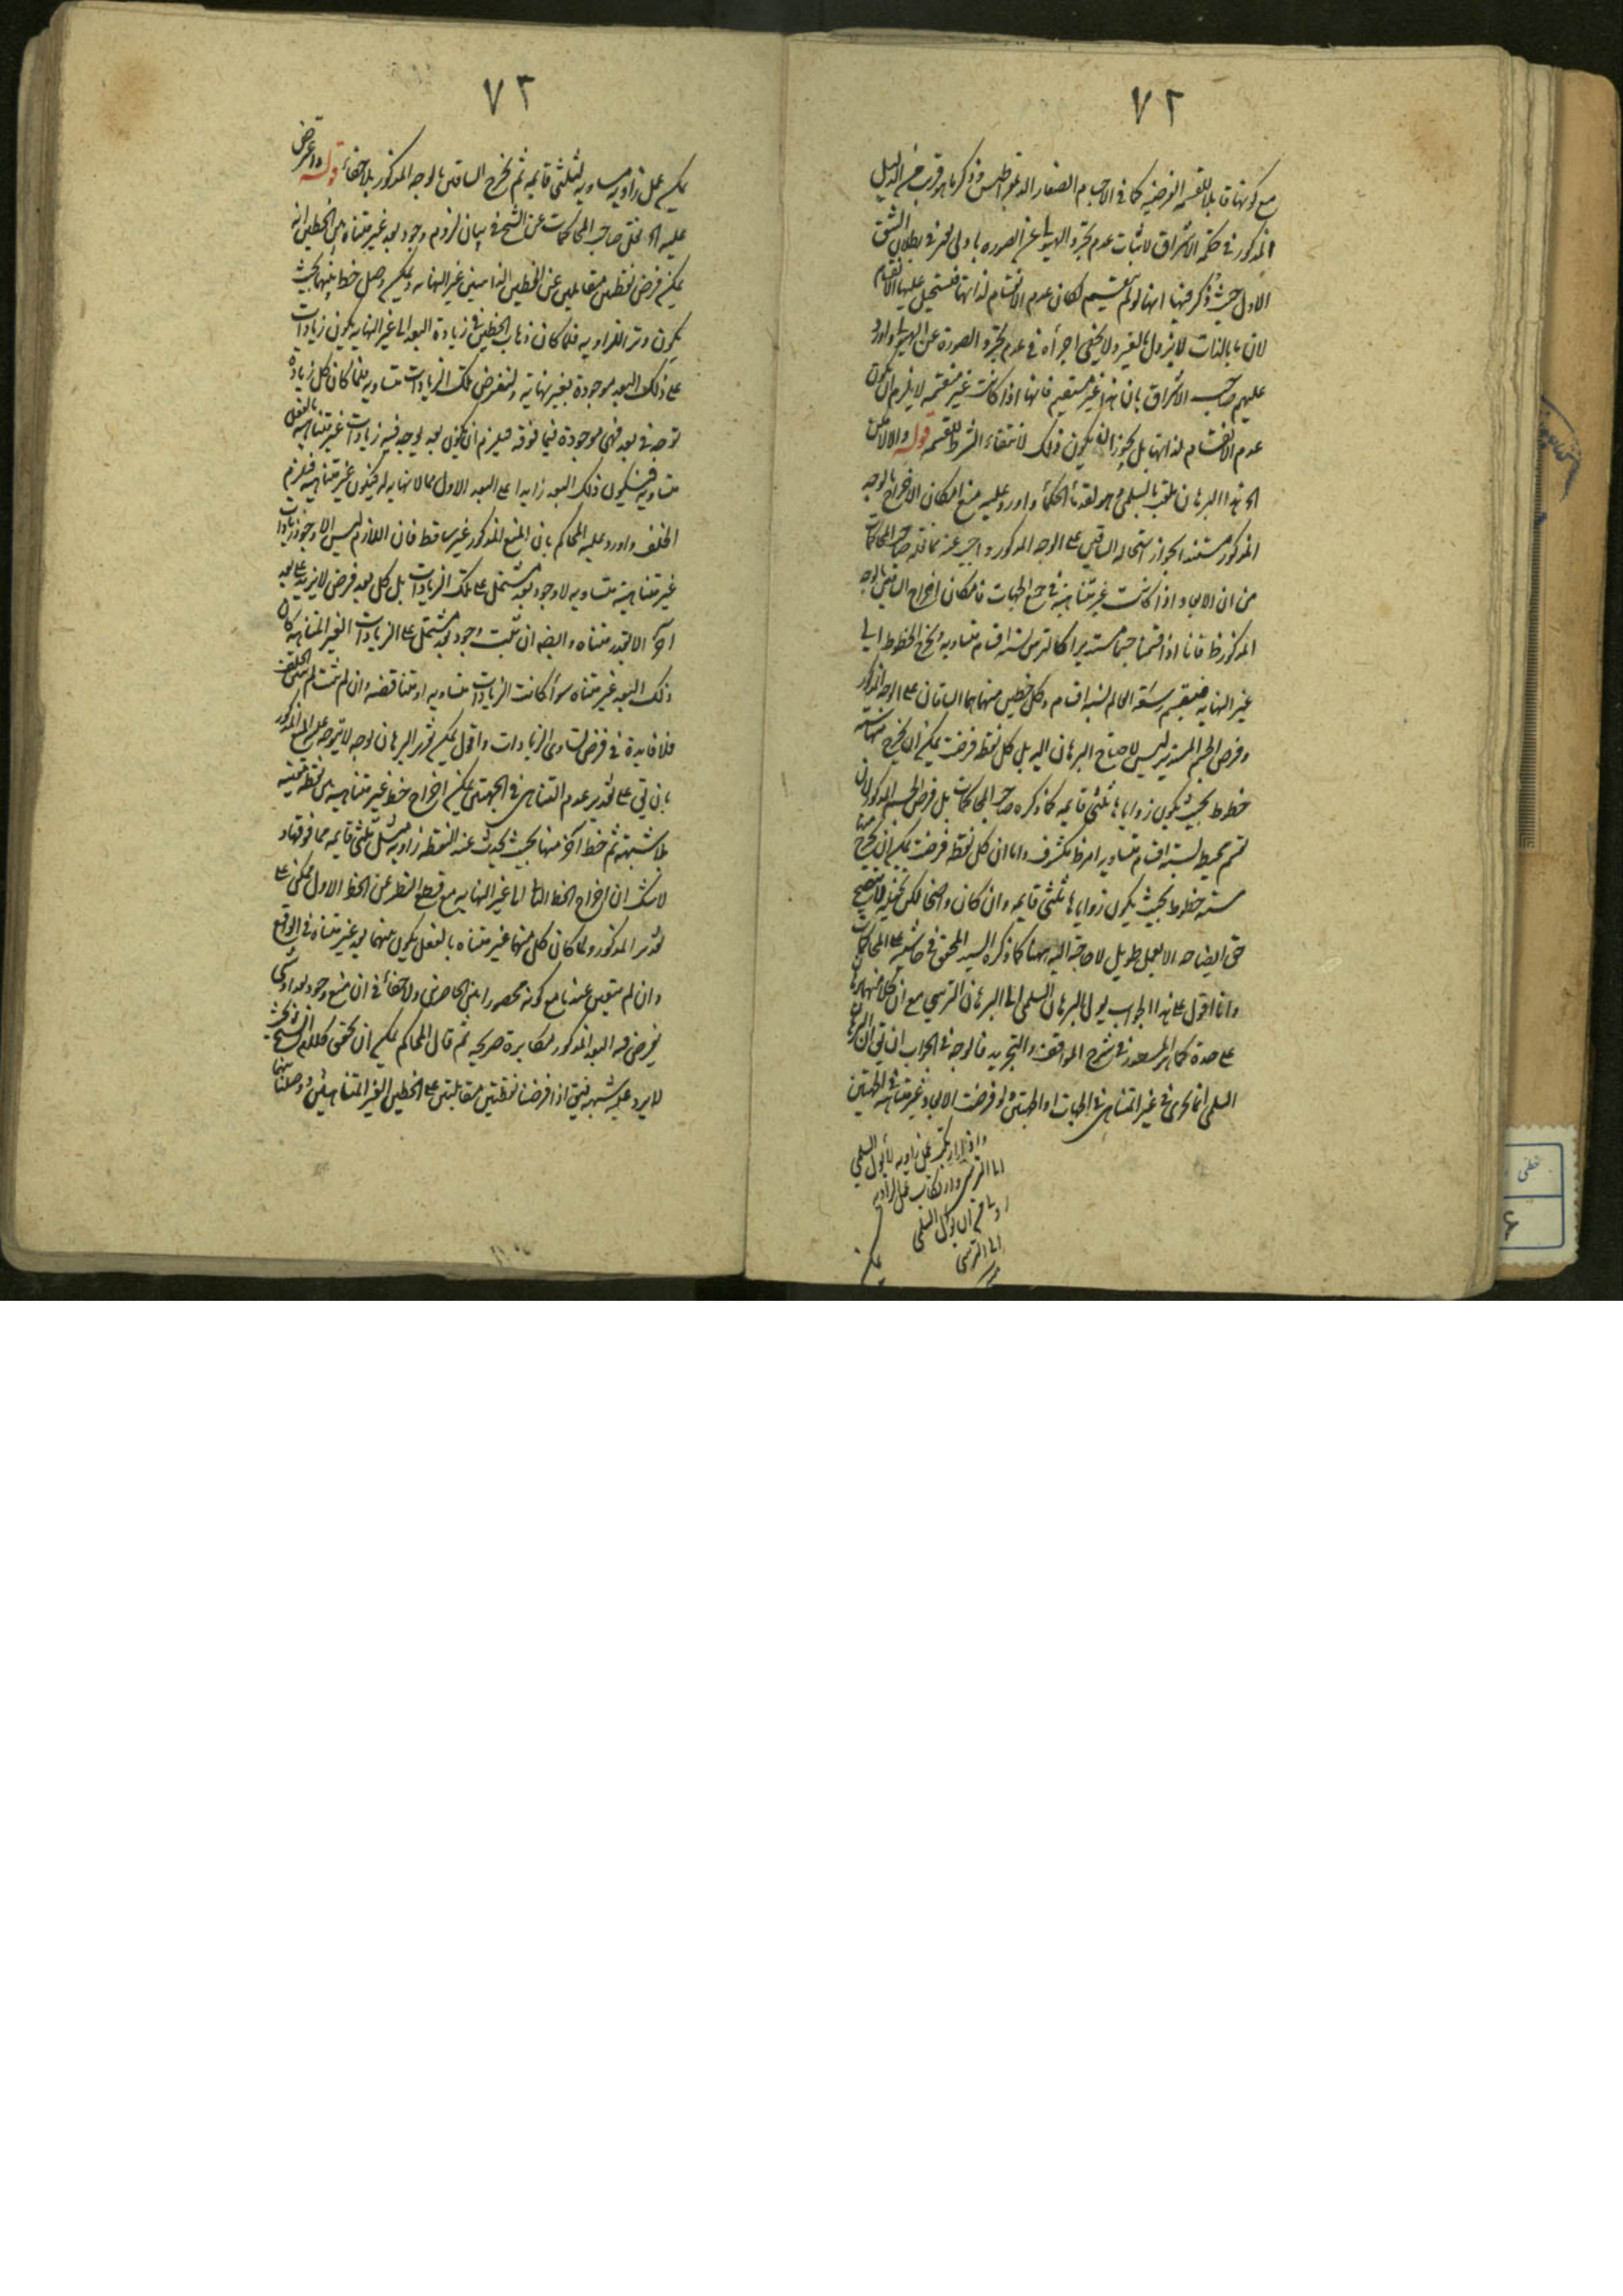 ٧٢
مع كونها قابلا للقسمه الفرضيه كما فى الاجسام الصغار الديمقراطيس وذكر ما هو قريب من الدليل
المذكور فى حكمة الاشراق لاثبات عدم تجرد الهيولى عن الصوره باولى نحو فى بطلان الشق
الاول حيث ذكر فيها انها لو لم تنقسم لكان عدم الانقسام لذاتها فيستحيل عليها الانقسام
لان ما بالذات لا يزول بالغير ولا يخفى اجرأه فى عدم تجرد الصورة عن الهيولى واورد
عليهم صاحب الاشراق بان هذا غير مستقيم فانها اذا كانت غير منقسمه لا يلزم ان يكون
عدم الانقسام لذاتها بل يجوز ان يكون ذلك لانتفاء الشرط للقسمه قوله والا لامكن
الخ هذا البرهان يلقب بالسلمى وهو لقدمأ الحكمأ واورد عليه منع امكان الاخراج بالوجه
المذكور مستندا بجواز استحاله الساقين على الوجه المذكور واجيب عنه بما نقله صاحب المحاكمات
من ان الابعاد اذا كانت غير متناهية فى جميع الجهات فامكان اخراج الساقين بالوجه
المذكور ظ فانا اذا قسمنا جسما مستديرا كالترس لستة اقسام متساويه ونخرج الخطوط الى
غير النهايه فينقسم سعة العالم لستة اقسام وكل خطين منها هما الساقان على الوجه المذكور
وفرض الجسم المستدير ليس لاحتياج البرهان اليه بل كل نقطه فرضت يمكن ان يخرج منها ستة
خطوط بحيث يكون زواياها ثلثى قايمه كما ذكره صاحب المحاكمات بل فرض الجسم المذكور لان
تقسيم محيط لستة اقسام متساويه امر ظ مكشوف واما ان كل نقطه فرضت يمكن ان يخرج منها
ستة خطوط بحيث يكون زواياها ثلثى قايمه وان كان واضحا لكن تخيله لا يتضح
حق ايضاحه الا بعمل طويل لا حاجة اليه ههنا كما ذكره السيد المحقق فى حاشيته على المحاكمات
وانا اقول على هذا الجواب يول البرهان السلمى الى البرهان الترسي مع ان كلا منهما برهان
على حدة كما هو المسطور فى شرح المواقف والتجريد فالوجه فى الجواب ان يق ان البرهان
السلمى انما يجرى فى غير المتناهى فى الجهات او الجهتين ولو فرضت الابعاد غير متناهية فى الجهتين
الى الترسى
يمكن
٧٣
يمكن عمل زاويه مساويه لثلثى قايمه ثم نخرج الساقين بالوجه المذكور بلا خفاء قوله واعترض
عليه الخ نقل صاحب المحاكمات عن الشيخ فى بيان لزوم وجود بعد غير متناه بين الخطين انه
يمكن فرض نقطتين متقابلتين عن الخطين الذاهبين غير النهايه ويمكن وصل خط بينهما بحيث
يكون وتر الزاويه فلما كان ذهاب الخطين فى زيادة البعد الى غير النهايه يكون زيادات
على ذلك البعد موجودة بغير نهاية ولنفرض تلك الزيادات متساويه فلما كان كل زيادة
توجد فى بعد فهى موجودة فيما فوقه فيلزم ان يكون بعد يوجد فيه زيادات غير متناهية بالفعل
متساويه فيكون ذلك البعد زايدا على البعد الاول بما لا نهاية له فيكون غير متناهية فيلزم
الخلف واورد عليه المحاكم بان المنع المذكور غير ساقط فان اللازم ليس الا وجود زيادات
غير متناهية متساويه لا وجود بعد مشتمل على تلك الزيادات بل كل بعد فرض لا يزيد على بعد
آخر الا بقدر متناه وايضا ان ثبت وجود بعد مشتمل على الزيادات الغير المتناهية كان
ذلك البعد غير متناه سوأ كانت الزيادات متساويه او متناقصه وان لم تثبت لم يتحقق الخلف
فلا فايدة فى فرض تساوى الزيادات واقول يمكن تقرير البرهان بوجه لا يتوجه عليه المنع المذكور
بان يق على تقدير عدم التناهى فى الجهتين يمكن اخراج خط غير متناهية من نقطة معينه
بلا شبهة ثم خط آخر منها بحيث يحدث عند النقطه زاويه مثل ثلثى قايمه مما فوقها و
لا شك ان اخراج الخط الثانى الى غير النهايه مع قطع النظر عن الخط الاول ممكن على
تقدير المذكور ولما كان كل منهما غير متناه بالفعل يكون بينهما بعد غير متناه فى الواقع
وان لم يتعين عندنا مع كونه محصورا بين الحاصرين ولا خفأ فى ان منع وجود بعد
يفرض فيه البعد المذكور مكابرة صريحه ثم قال المحاكم يمكن ان يتحقق كلام الشيخ بحيث
لا يرد عليه شبهه فنق اذا فرضنا نقطتين متقابلتين على الخطين الغير المتناهيين ووصلنا بينهما
خطى